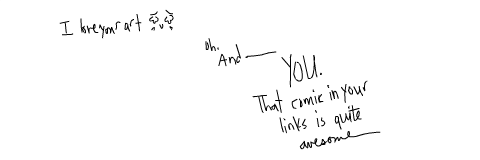 I love your art
Oh.
And
YOU.
That comic in your
links is quite
awesome